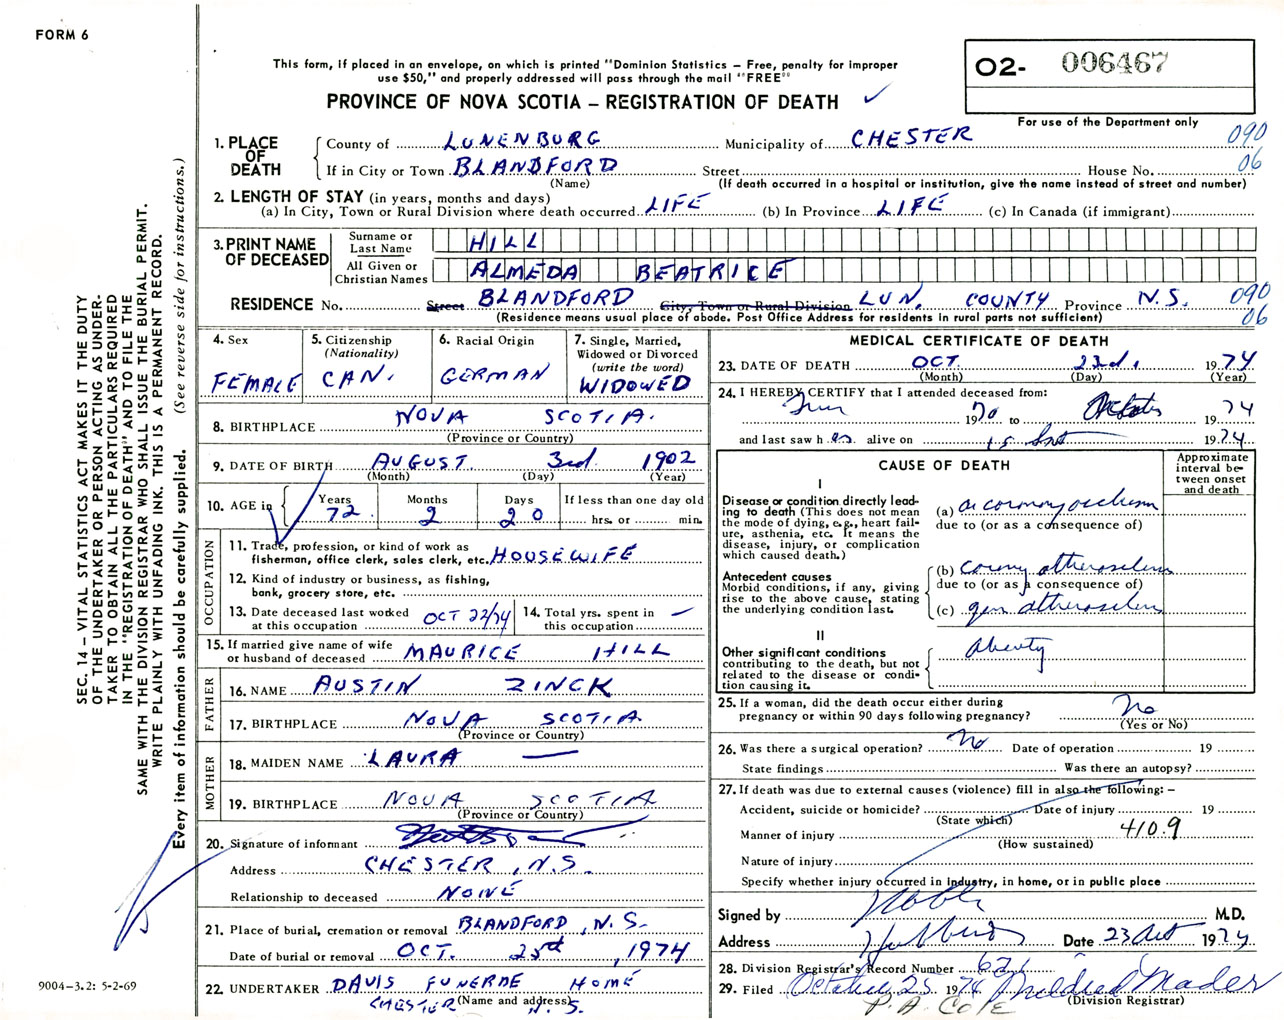 FORM 6
This form, if placed in an envelope, on which is printed "Dominion Statistics – Free, penalty for improper
use $50," and properly addressed will pass through the mail "FREE"
PROVINCE OF NOVA SCOTIA – REGISTRATION OF DEATH ✓
O2- 006467
For use of the Department only
090
06
1. PLACE OF DEATH
County of LUNENBURG Municipality of CHESTER
If in City or Town BLANDFORD Street House No.
(Name) (If death occurred in a hospital or institution, give the name instead of street and number)
2. LENGTH OF STAY (in years, months and days)
(a) In City, Town or Rural Division where death occurred LIFE (b) In Province LIFE (c) In Canada (if immigrant)
3. PRINT NAME OF DECEASED
Surname or Last Name HILL
All Given or Christian Names ALMEDA BEATRICE
RESIDENCE No. Street BLANDFORD City, Town or Rural Division LUN. COUNTY Province N.S. 090
(Residence means usual place of abode. Post Office Address for residents in rural parts not sufficient) 06
4. Sex
FEMALE
5. Citizenship
(Nationality)
CAN.
6. Racial Origin
GERMAN
7. Single, Married,
Widowed or Divorced
(write the word)
WIDOWED
8. BIRTHPLACE NOVA SCOTIA.
(Province or Country)
9. DATE OF BIRTH AUGUST 3rd 1902
(Month) (Day) (Year)
10. AGE in
Years 72
Months 2
Days 20
If less than one day old
hrs. or min.
OCCUPATION
11. Trade, profession, or kind of work as
fisherman, office clerk, sales clerk, etc. HOUSEWIFE
12. Kind of industry or business, as fishing,
bank, grocery store, etc.
13. Date deceased last worked
at this occupation OCT 22/74
14. Total yrs. spent in
this occupation —
15. If married give name of wife
or husband of deceased MAURICE HILL
FATHER
16. NAME AUSTIN ZINCK
17. BIRTHPLACE NOVA SCOTIA
(Province or Country)
MOTHER
18. MAIDEN NAME LAURA —
19. BIRTHPLACE NOVA SCOTIA
(Province or Country)
20. Signature of informant
Address CHESTER, N.S.
Relationship to deceased NONE
21. Place of burial, cremation or removal BLANDFORD, N.S.
Date of burial or removal OCT. 25th, 1974
22. UNDERTAKER DAVIS FUNERAL HOME
(Name and address) CHESTER N.S.
MEDICAL CERTIFICATE OF DEATH
23. DATE OF DEATH OCT. 23rd, 1974
(Month) (Day) (Year)
24. I HEREBY CERTIFY that I attended deceased from:
1970 to October 1974
and last saw her alive on 15 1974
CAUSE OF DEATH
Approximate
interval be-
tween onset
and death
I
Disease or condition directly lead-
ing to death (This does not mean
the mode of dying, e.g., heart fail-
ure, asthenia, etc. It means the
disease, injury, or complication
which caused death.)
(a) ac coronary occlusion
due to (or as a consequence of)
Antecedent causes
Morbid conditions, if any, giving
rise to the above cause, stating
the underlying condition last.
(b) coronary atherosclerosis
due to (or as a consequence of)
(c) gen atherosclerosis
II
Other significant conditions
contributing to the death, but not
related to the disease or condi-
tion causing it.
obesity
25. If a woman, did the death occur either during
pregnancy or within 90 days following pregnancy? No
(Yes or No)
26. Was there a surgical operation? No Date of operation 19
State findings Was there an autopsy?
27. If death was due to external causes (violence) fill in also the following: –
Accident, suicide or homicide? Date of injury 19
(State which)
Manner of injury 410.9
(How sustained)
Nature of injury
Specify whether injury occurred in industry, in home, or in public place
Signed by M.D.
Address Hubbards Date 23 Oct 1974
28. Division Registrar's Record Number
29. Filed October 25 1974 Mildred Mader
(Division Registrar)
P.A. COLE
SEC. 14 – VITAL STATISTICS ACT MAKES IT THE DUTY
OF THE UNDERTAKER OR PERSON ACTING AS UNDER-
TAKER TO OBTAIN ALL THE PARTICULARS REQUIRED
IN THE "REGISTRATION OF DEATH" AND TO FILE THE
SAME WITH THE DIVISION REGISTRAR WHO SHALL ISSUE THE BURIAL PERMIT.
WRITE PLAINLY WITH UNFADING INK. THIS IS A PERMANENT RECORD.
Every item of information should be carefully supplied. (See reverse side for instructions.)
9004-3.2: 5-2-69